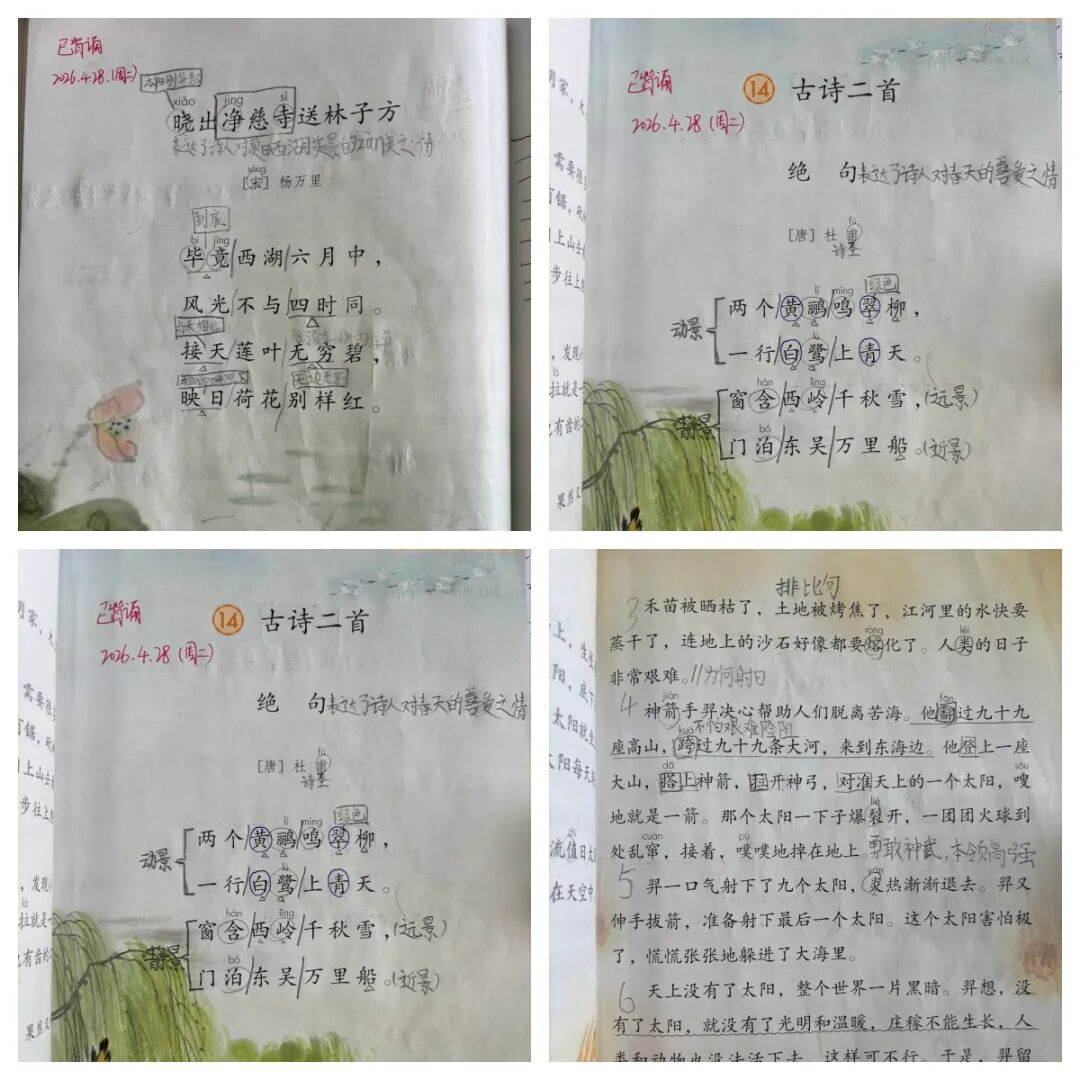 已背诵
2026.4.28.(周二)
太阳刚升起
xiǎo jìng sì
晓出净慈寺送林子方
表达了诗人对夏日西湖美景的之情
sòng
[宋] 杨万里
到底
bì jìng
毕竟西湖六月中，
风光不与四时同。
与天相接
接天莲叶无穷碧，
无边无际
映日荷花别样红。
已背诵
2026.4.28(周二)
14 古诗二首
绝 句 表达了诗人对春天的喜爱之情
fǔ
[唐] 杜甫
诗圣
绿色
lí míng
两个黄鹂鸣翠柳，
动景
lù
一行白鹭上青天。
hán lǐng
窗含西岭千秋雪，(远景)
静景
bó
门泊东吴万里船。(近景)
需要很
上山去
步往上
，发现
拉就是一
有齿的
果然又
已背诵
2026.4.28(周二)
14 古诗二首
绝 句 表达了诗人对春天的喜爱之情
fǔ
[唐] 杜甫
诗圣
绿色
lí míng
两个黄鹂鸣翠柳，
动景
lù
一行白鹭上青天。
hán lǐng
窗含西岭千秋雪，(远景)
静景
bó
门泊东吴万里船。(近景)
需要很
上山去
步往上
，发现
拉就是一
有齿的
果然又
排比句
3 禾苗被晒枯了，土地被烤焦了，江河里的水快要
róng lèi
蒸干了，连地上的沙石好像都要熔化了。人类的日子
非常艰难。//为何射日
jiàn fān
4 神箭手羿决心帮助人们脱离苦海。他翻过九十九
kuà 不怕艰难险阻
座高山，跨过九十九条大河，来到东海边。他登上一座
dā sōu
大山，搭上神箭，拉开神弓，对准天上的一个太阳，嗖
liè
地就是一箭。那个太阳一下子爆裂开，一团团火球到
cuàn pū
处乱窜，接着，噗噗地掉在地上。勇敢神武，本领高强
yán
5 羿一口气射下了九个太阳，炎热渐渐退去。羿又
伸手拔箭，准备射下最后一个太阳。这个太阳害怕极
了，慌慌张张地躲进了大海里。
6 天上没有了太阳，整个世界一片黑暗。羿想，没
有了太阳，就没有了光明和温暖，庄稼不能生长，人
类和动物也没法活下去，这样可不行。于是，羿留